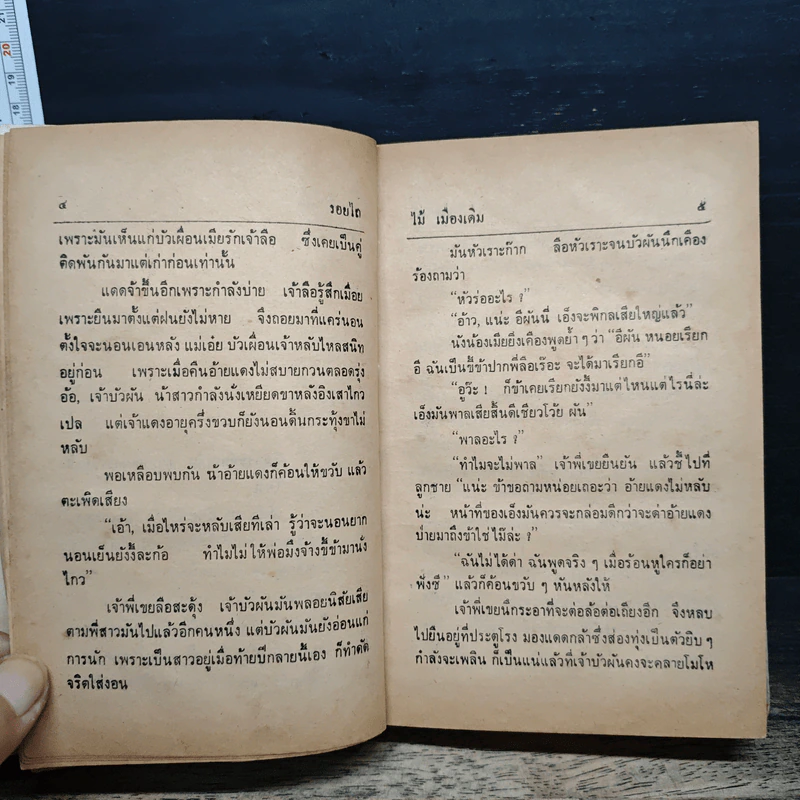 ๔ รอยไถ
เพราะมันเห็นแก่บัวเผื่อนเมียรักเจ้าลือ ซึ่งเคยเป็นคู่
คิดพันกันมาแต่เก่าก่อนเท่านั้น
แดดจ้าขึ้นอีกเพราะกำลังบ่าย เจ้าลือรู้สึกเมื่อย
เพราะยืนมาตั้งแต่ฝนยังไม่หาย จึงถอยมาที่แคร่นอน
ตั้งใจจะนอนเอนหลัง แม่เอ๋ย บัวเผื่อนเจ้าหลับใหลสนิท
อยู่ก่อน เพราะเมื่อคืนอ้ายแดงไม่สบายกวนตลอดรุ่ง
อ้อ, เจ้าบัวผัน น้าสาวกำลังนั่งเหยียดขาหลังอิงเสาไกว
เปล แต่เจ้าแดงอายุครึ่งขวบก็ยังนอนดิ้นกระทุ้งขาไม่
หลับ
พอเหลือบพบกัน น้าอ้ายแดงก็ค้อนให้ขวับ แล้ว
ตะเพิดเสียง
“เอ้า, เมื่อไหร่จะหลับเสียทีเล่า รู้ว่าจะนอนยาก
นอนเย็นยังงี้ละก้อ ทำไมไม่ให้พ่อมึงจ้างขี้ข้ามานั่ง
ไกว”
เจ้าพี่เขยลือสะดุ้ง เจ้าบัวผันมันพลอยนิสัยเสีย
ตามพี่สาวมันไปแล้วอีกคนหนึ่ง แต่บัวผันมันยังอ่อนแก่
การนัก เพราะเป็นสาวอยู่เมื่อท้ายปีกลายนี้เอง ก็ทำดัด
จริตใส่งอน
ไม้ เมืองเดิม ๕
มันหัวเราะก๊าก ลือหัวเราะจนบัวผันนึกเคือง
ร้องถามว่า
“หัวร่ออะไร ?”
“อ้าว, แน่ะ อีผันนี่ เอ็งจะพิกลเสียใหญ่แล้ว”
นังน้องเมียยิ่งเคืองพูดย้ำ ๆ ว่า “อีผัน หนอยเรียก
อี ฉันเป็นขี้ข้าปากพี่ลือเรอะ จะได้มาเรียกอี”
“อูวะ ! ก็ข้าเคยเรียกยังงี้มาแต่ไหนแต่ไรนี่ล่ะ
เอ็งมันพาลเสียสิ้นดีเชียวโว้ย ผัน”
“พาลอะไร ?”
“ทำไมจะไม่พาล” เจ้าพี่เขยยืนยัน แล้วชี้ไปที่
ลูกชาย “แน่ะ ข้าขอถามหน่อยเถอะว่า อ้ายแดงไม่หลับ
น่ะ หน้าที่ของเอ็งมันควรจะกล่อมดีกว่าจะด่าอ้ายแดง
ป่ายมาถึงข้าใช่ไม๊ล่ะ ?”
“ฉันไม่ได้ด่า ฉันพูดจริง ๆ เมื่อร้อนหูใครก็อย่า
ฟังซี” แล้วก็ค้อนขวับ ๆ หันหลังให้
เจ้าพี่เขยนึกระอาที่จะต่อล้อต่อเถียงอีก จึงหลบ
ไปยืนอยู่ที่ประตูโรง มองแดดกล้าซึ่งส่องทุ่งเป็นตัวยิบ ๆ
กำลังจะเพลิน ก็เป็นแน่แล้วที่เจ้าบัวผันคงจะคลายโมโห
21
20
19
18